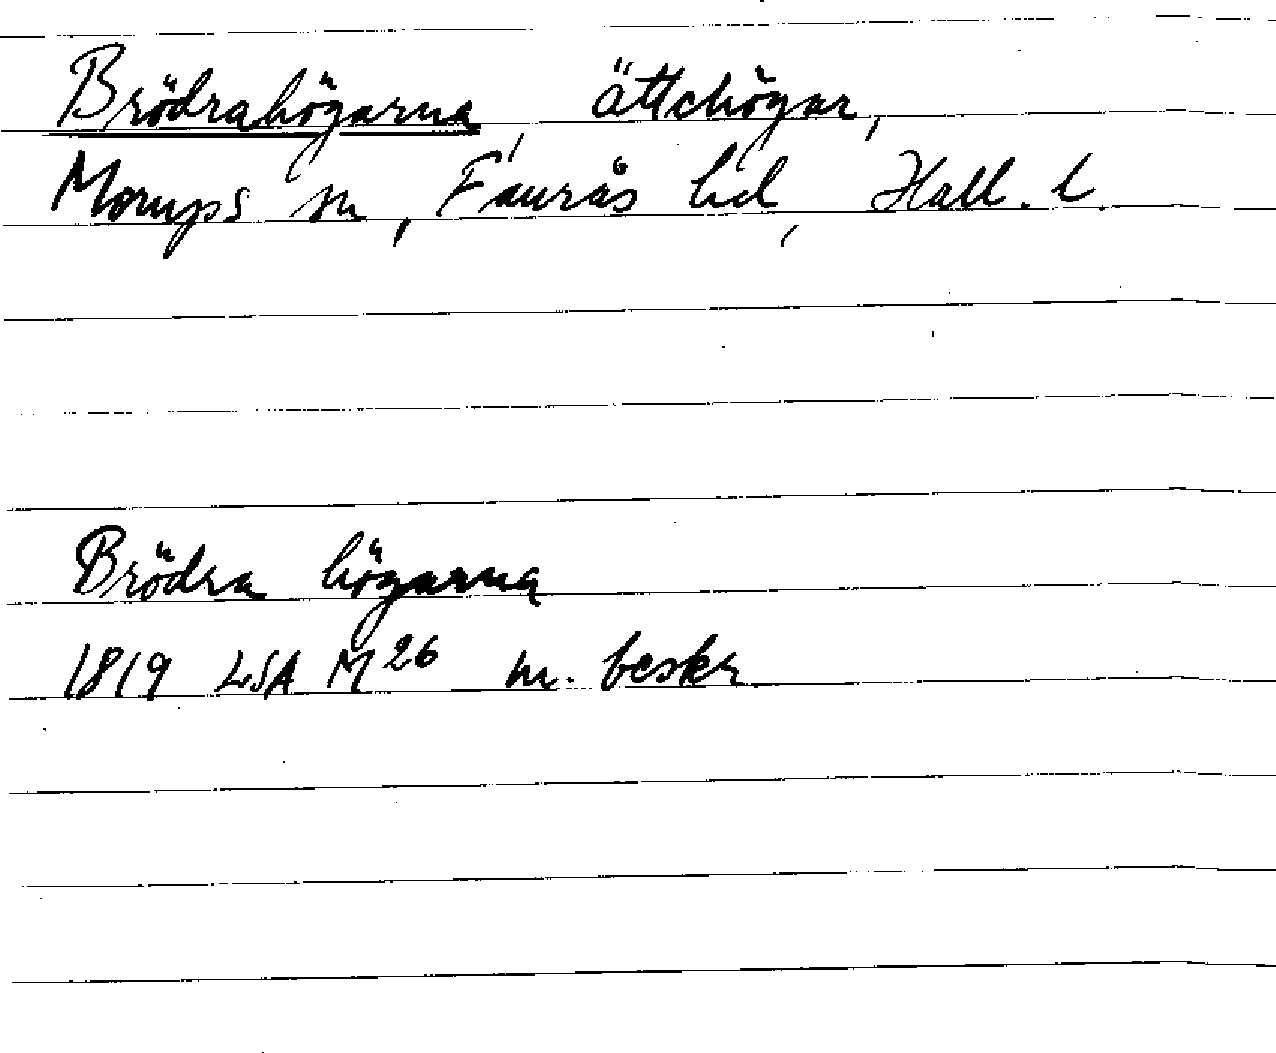 Brödrahögarna, ättehögar,
Morups sn, Faurås hd, Hall. l.
Brödra högarna
1819 LSA M26 m. beskr